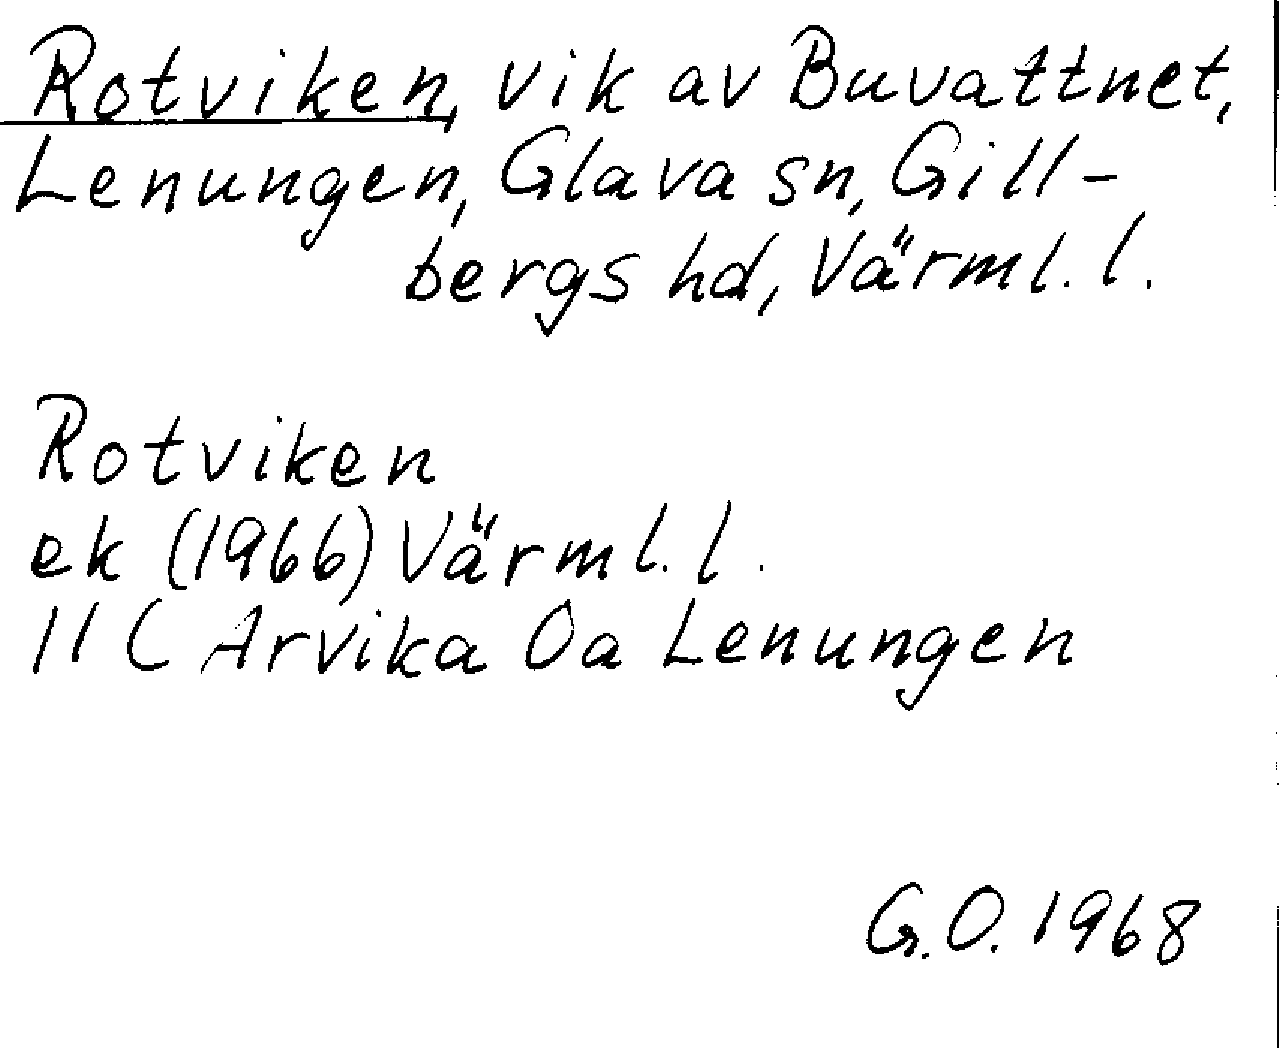 Rotviken, vik av Buvattnet,
Lenungen, Glava sn, Gill-
bergs hd, Värml. l.
Rotviken
ek (1966) Värml. l.
11 C Arvika Oa Lenungen
G.O. 1968